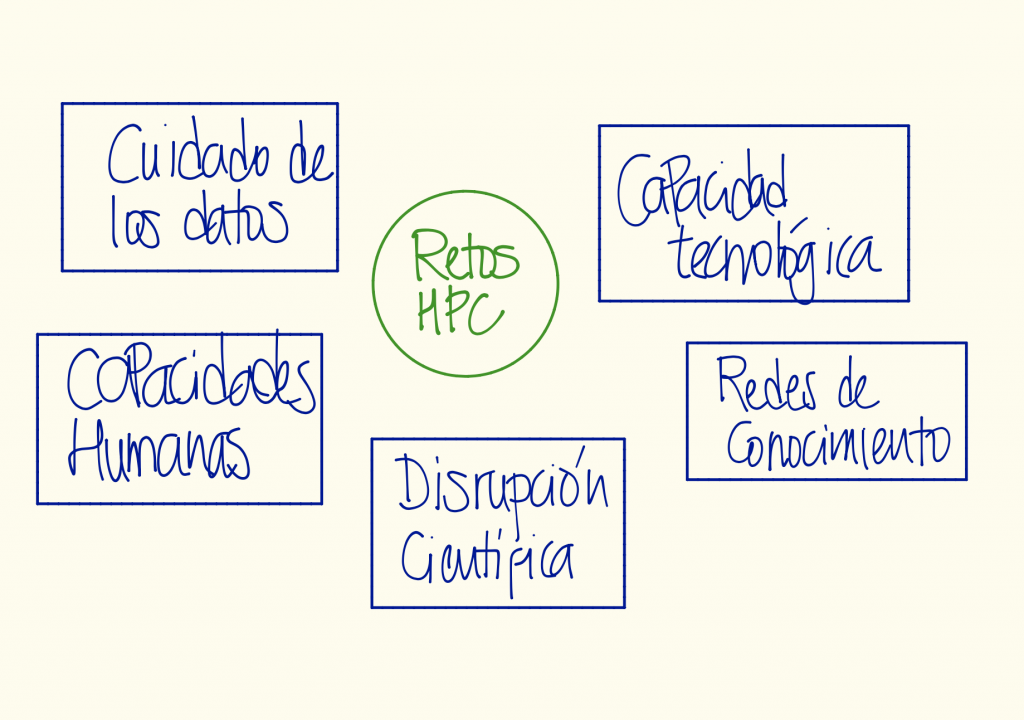 Cuidado de
los datos
Retos
HPC
Capacidad
tecnológica
Capacidades
Humanas
Disrupción
Científica
Redes de
Conocimiento